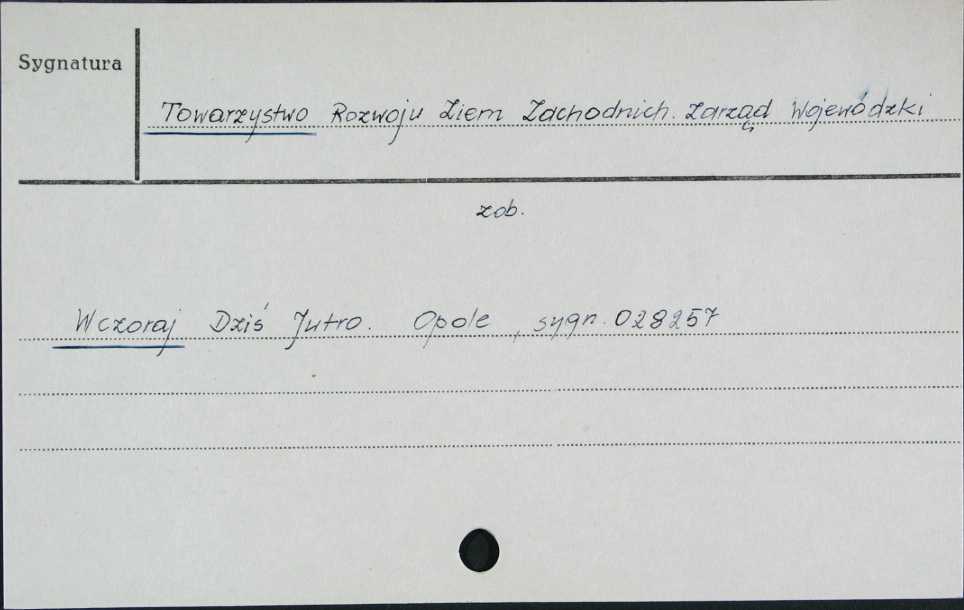 Sygnatura
Towarzystwo Rozwoju Ziem Zachodnich. Zarząd Wojewódzki
zob.
Wczoraj Dziś Jutro. Opole, sygn. 028257